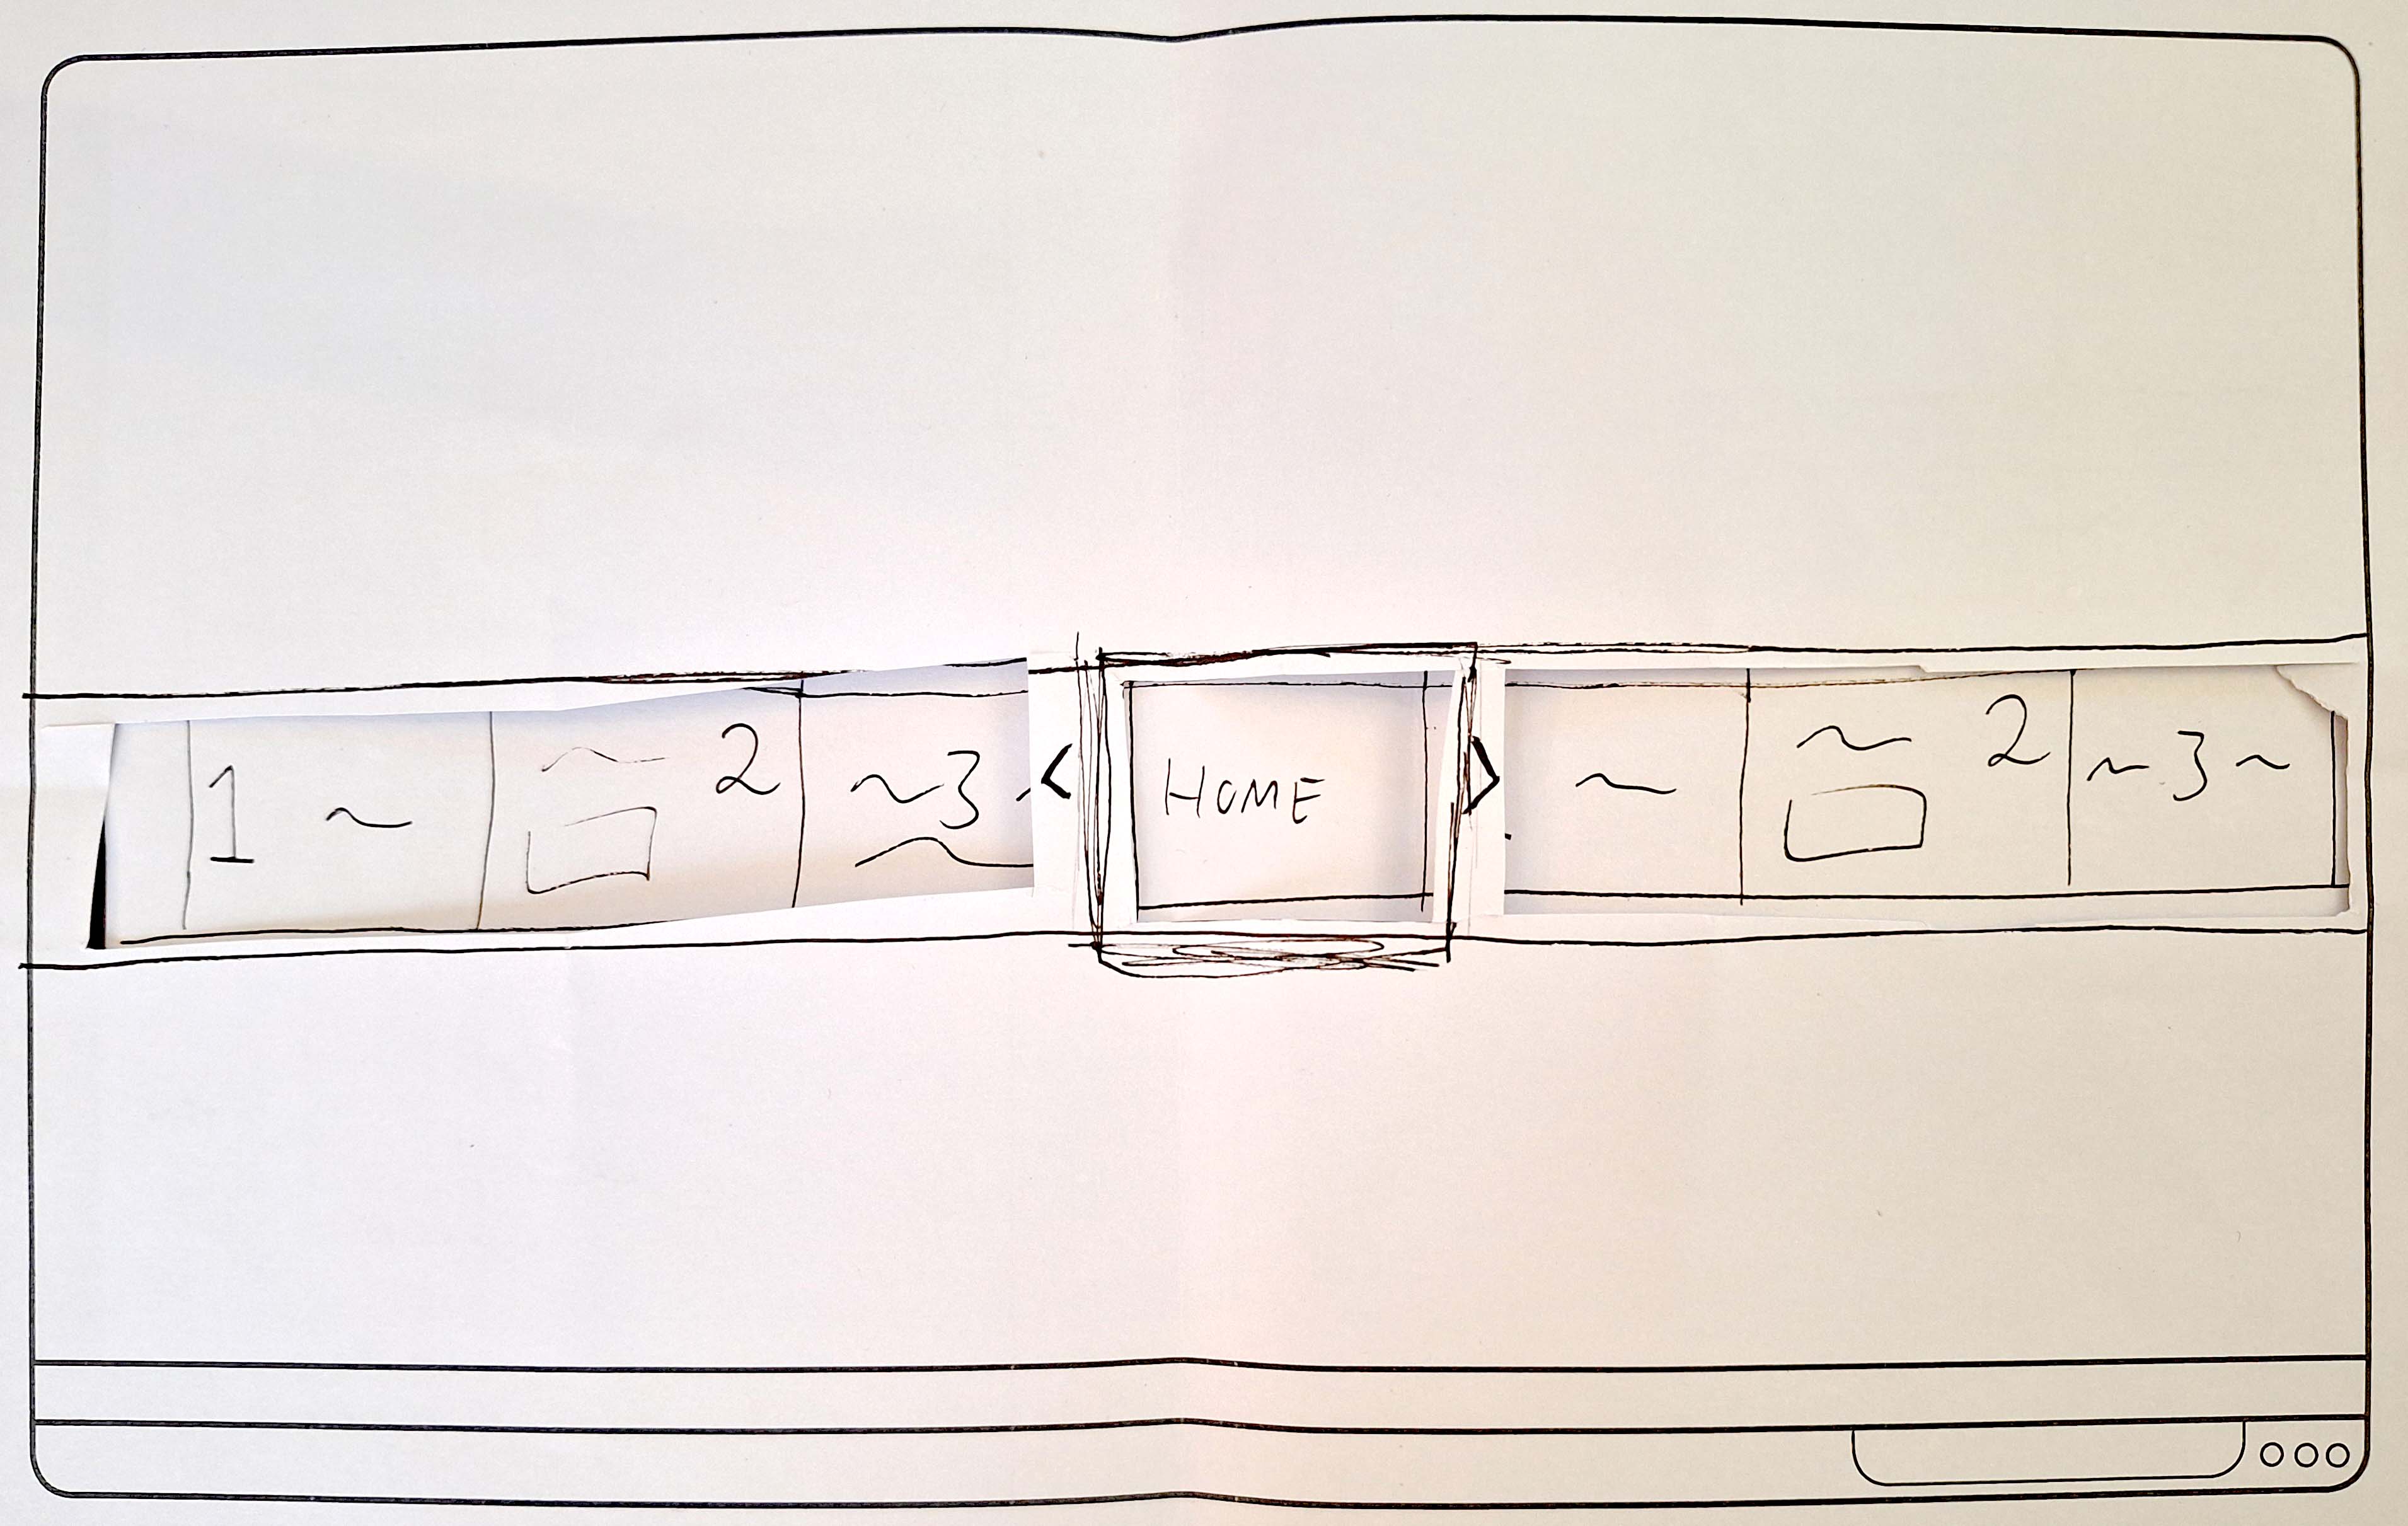 1 ~ ~ 2 ~3~ < HOME > ~ ~ 2 ~3~